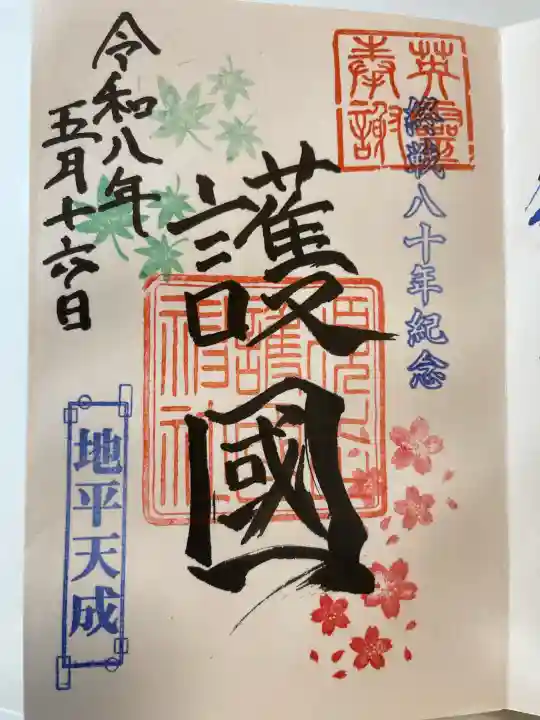 英霊
奉謝
終戦八十年紀念
護國
令和八年
五月十六日
地平天成